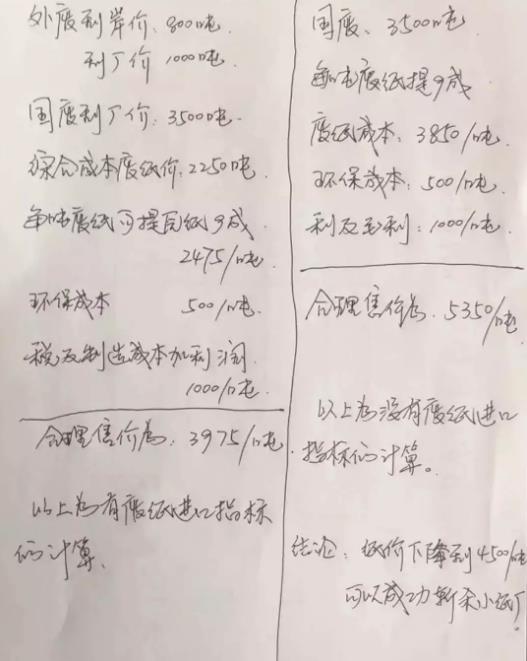 外废到岸价: 800吨.
到厂价 1000吨.
国废到厂价: 3500吨.
综合成本废纸价: 2250吨.
每吨废纸可提瓦纸9成
2475/吨.
环保成本 500/吨.
税及制造成本加利润
1000/吨.
合理售价为: 3975/吨
以上为有废纸进口指标
的计算.
国废、3500吨.
每吨废纸提9成
废纸成本: 3850/吨
环保成本: 500/吨
利及毛利: 1000/吨
合理售价为. 5350/吨
以上为没有废纸进口
指标的计算。
结论: 纸价下降到4500/吨
可以成功斩杀小纸厂.